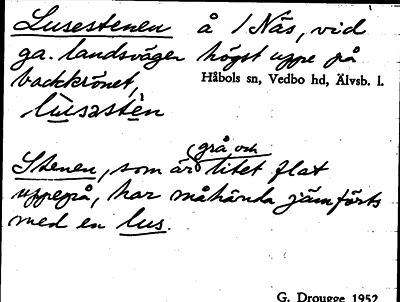 Lusestenen å 1 Näs, vid
ga. landsvägen högst uppe på
backkrönet,
Håbols sn, Vedbo hd, Älvsb. l.
lùsastèn
Stenen, som är grå och litet flat
uppepå, har måhända jämförts
med en lus.
G. Drougge 1952